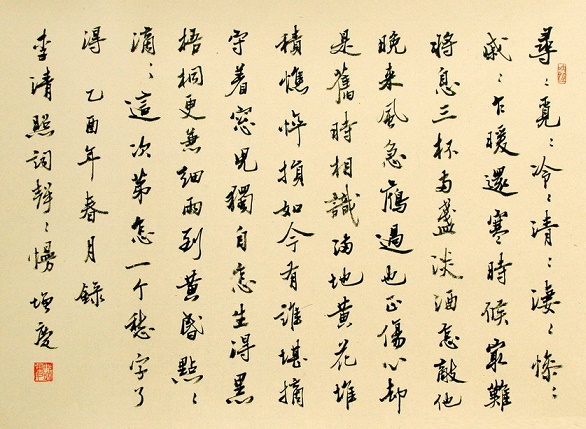 尋〻覓〻冷〻清〻凄〻慘〻
戚〻乍暖還寒時候㝡難
將息三杯兩盞淡酒怎敵他
晚来風急鴈過也正傷心却
是舊時相識滿地黄花堆
積憔悴損如今有誰堪摘
守着窓兒獨自怎生得黑
梧桐更兼細雨到黄昏點〻
滴〻這次第怎一个愁字了
得 乙酉年春月錄
李清照詞聲〻慢 增慶